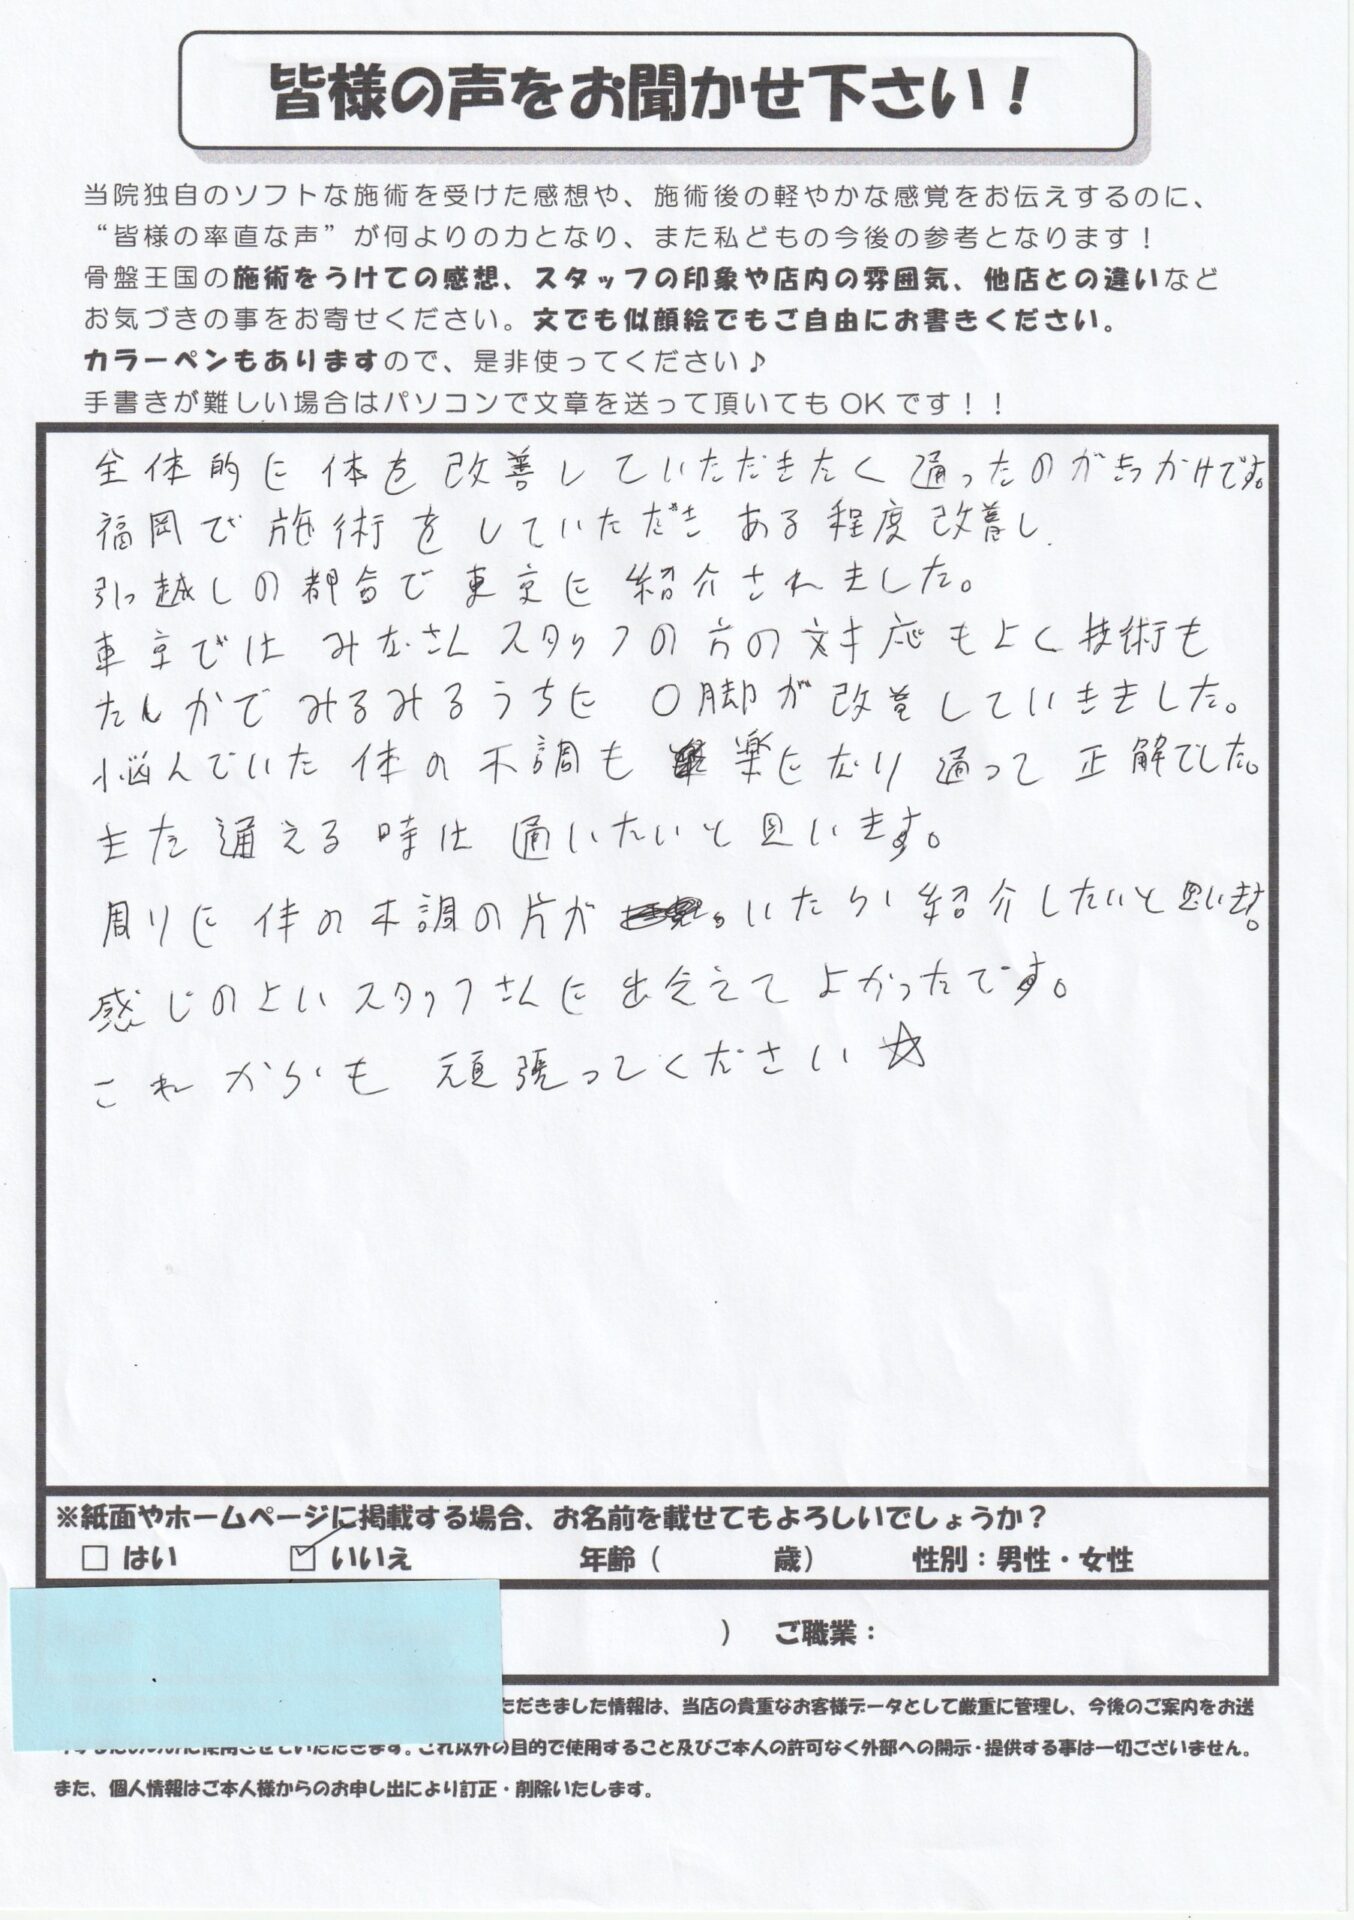 皆様の声をお聞かせ下さい！
当院独自のソフトな施術を受けた感想や、施術後の軽やかな感覚をお伝えするのに、
“皆様の率直な声”が何よりの力となり、また私どもの今後の参考となります！
骨盤王国の施術をうけての感想、スタッフの印象や店内の雰囲気、他店との違いなど
お気づきの事をお寄せください。文でも似顔絵でもご自由にお書きください。
カラーペンもありますので、是非使ってください♪
手書きが難しい場合はパソコンで文章を送って頂いてもOKです！！
全体的に体を改善していただきたく通ったのがきっかけです。
福岡で施術をしていただきある程度改善し、
引っ越しの都合で東京に紹介されました。
東京ではみなさんスタッフの方の対応もよく技術も
たしかでみるみるうちに〇脚が改善していきました。
悩んでいた体の不調も楽になり通って正解でした。
また通える時は通いたいと思います。
周りに体の不調の片がいたら紹介したいと思います。
感じのよいスタッフさんに出会えてよかったです。
これからも頑張ってください☆
※紙面やホームページに掲載する場合、お名前を載せてもよろしいでしょうか？
□ はい ☑ いいえ 年齢（ 歳） 性別：男性・女性
） ご職業：
ただきました情報は、当店の貴重なお客様データとして厳重に管理し、今後のご案内をお送
に使用させていただきます。これ以外の目的で使用すること及びご本人の許可なく外部への開示・提供する事は一切ございません。
また、個人情報はご本人様からのお申し出により訂正・削除いたします。